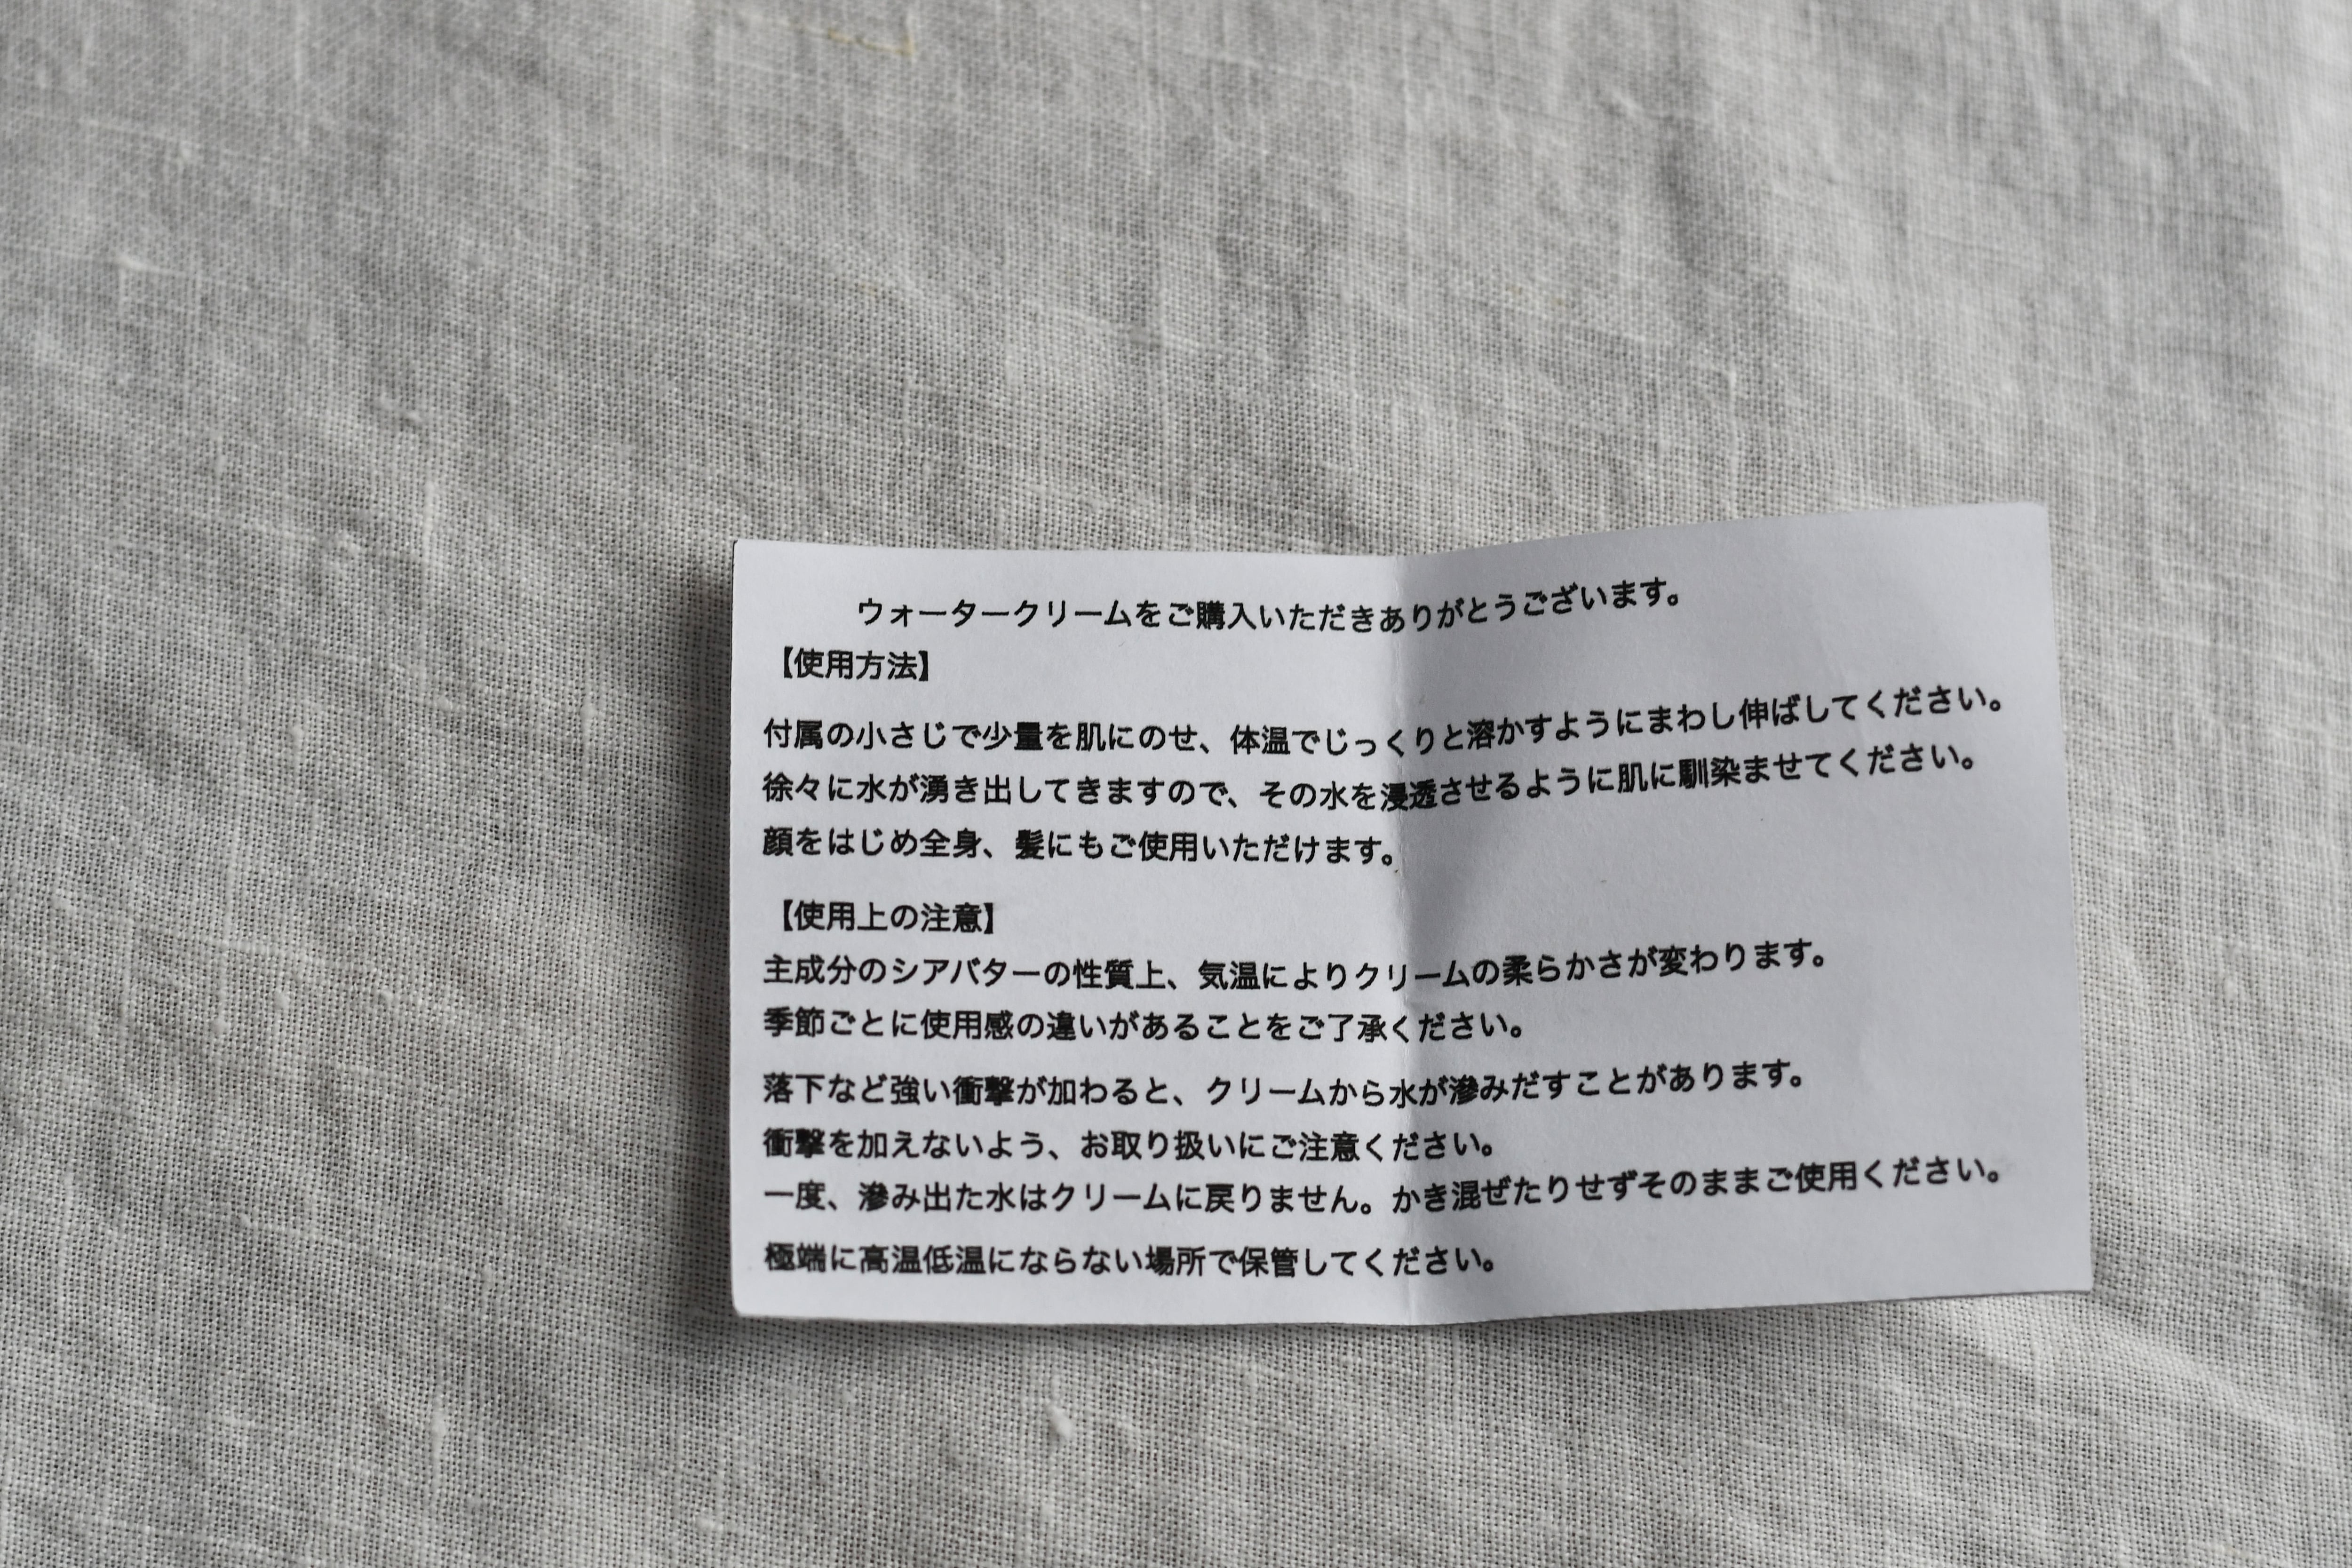 ウォータークリームをご購入いただきありがとうございます。
【使用方法】
付属の小さじで少量を肌にのせ、体温でじっくりと溶かすようにまわし伸ばしてください。
徐々に水が湧き出してきますので、その水を浸透させるように肌に馴染ませてください。
顔をはじめ全身、髪にもご使用いただけます。
【使用上の注意】
主成分のシアバターの性質上、気温によりクリームの柔らかさが変わります。
季節ごとに使用感の違いがあることをご了承ください。
落下など強い衝撃が加わると、クリームから水が滲みだすことがあります。
衝撃を加えないよう、お取り扱いにご注意ください。
一度、滲み出た水はクリームに戻りません。かき混ぜたりせずそのままご使用ください。
極端に高温低温にならない場所で保管してください。